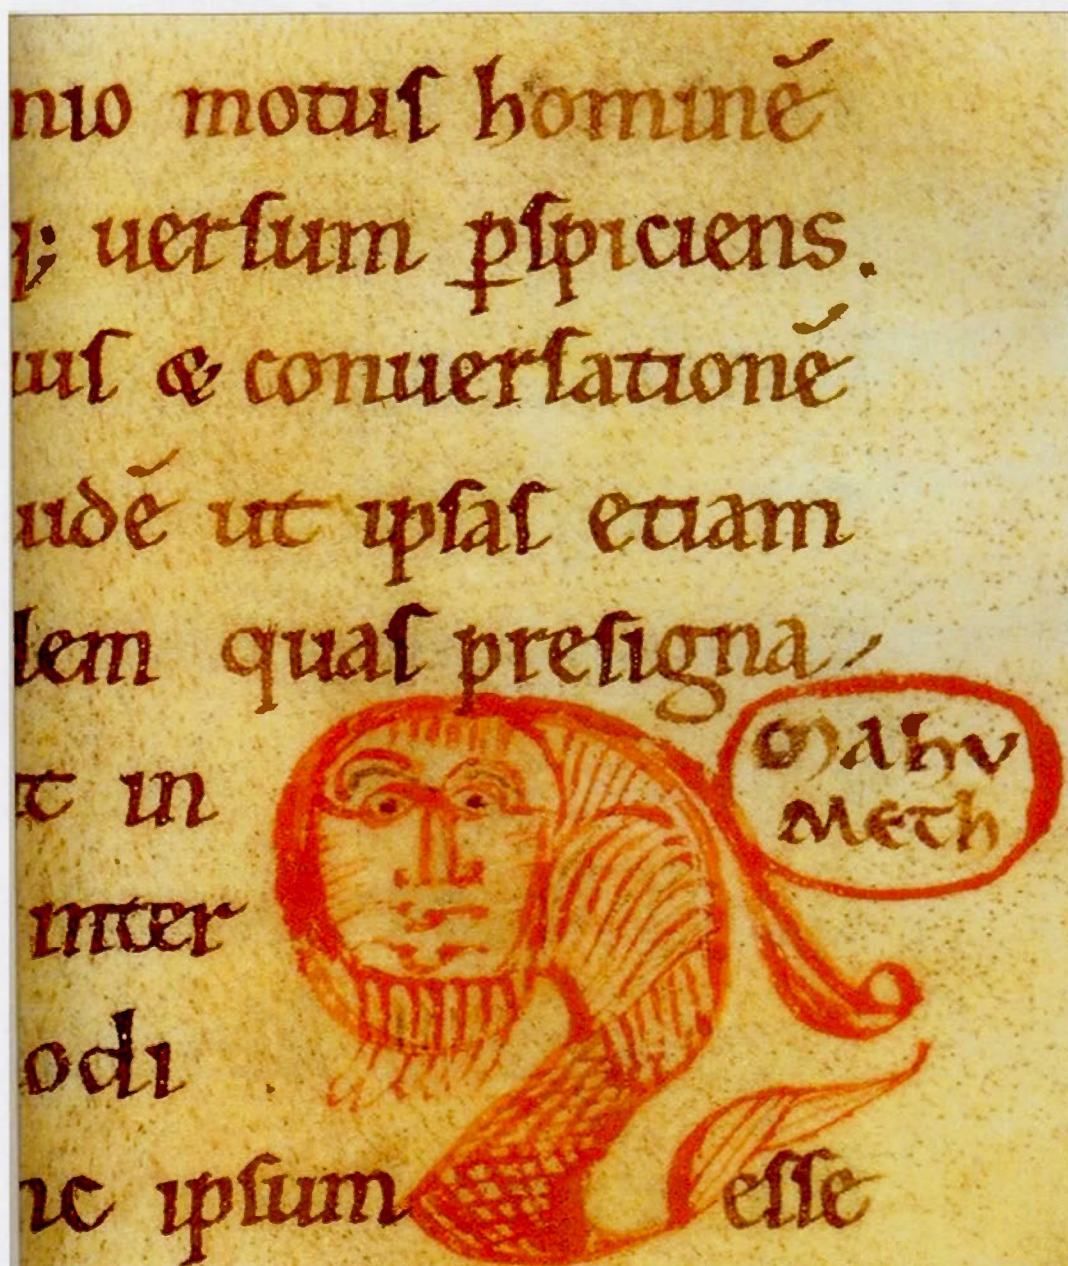 nio motus hominē
q; uersum pspiciens.
uus & conuersationē
uidē ut ipsas etiam
lem quas presigna
Mahu
meth
t in
inter
odi
ic ipsum esse